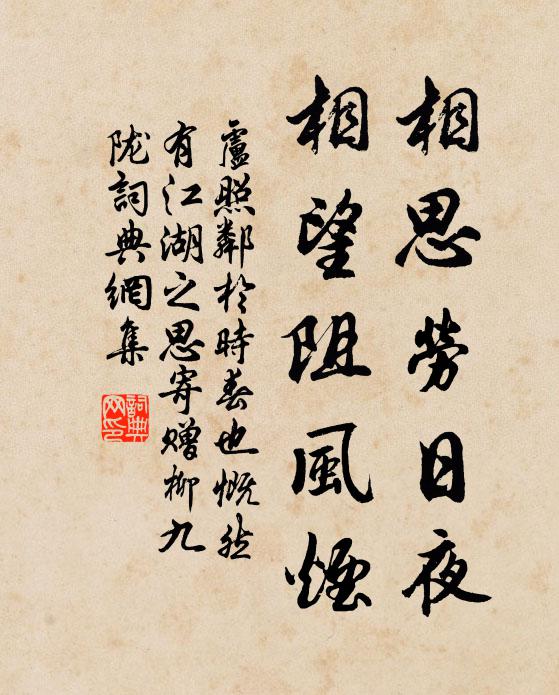 相思勞日夜
相望阻風煙
盧照鄰於時春也慨然
有江湖之思寄贈柳九
陇詞典網集
詞典
网印